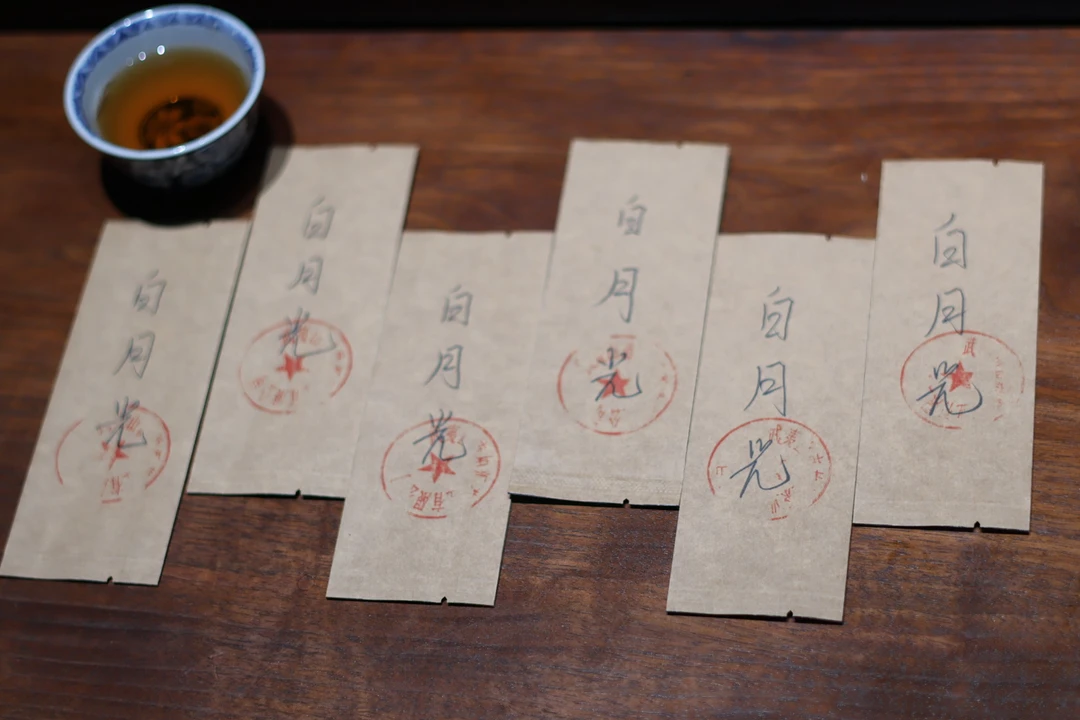 白月光
白月光
白月光
白月光
白月光
白月光